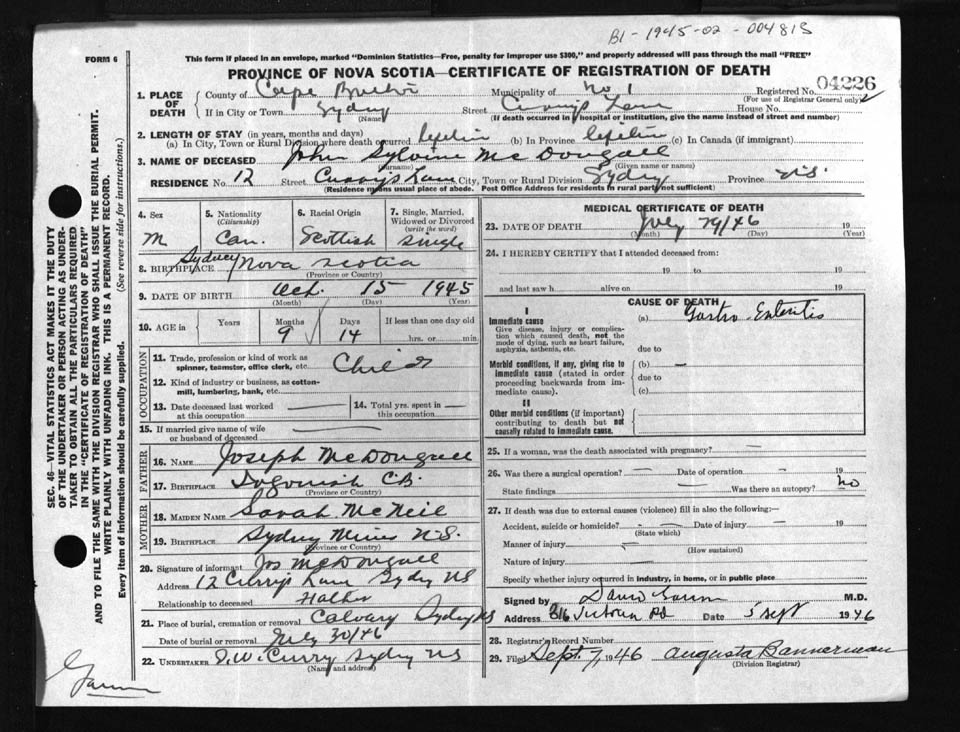 B1-1945-02-004813
FORM 6
This form if placed in an envelope, marked "Dominion Statistics—Free, penalty for improper use $300," and properly addressed will pass through the mail "FREE"
PROVINCE OF NOVA SCOTIA—CERTIFICATE OF REGISTRATION OF DEATH
04226
1. PLACE OF DEATH
County of Cape Breton Municipality of No 1 Registered No.
(For use of Registrar General only)
If in City or Town Sydney Street Currys Lane House No.
(Name) (If death occurred in hospital or institution, give the name instead of street and number)
2. LENGTH OF STAY (in years, months and days)
(a) In City, Town or Rural Division where death occurred lifetime (b) In Province lifetime (c) In Canada (if immigrant)
3. NAME OF DECEASED John Sylvine McDougall
(Surname) (Given name or names)
RESIDENCE No. 12 Street Currys Lane City, Town or Rural Division Sydney Province N.S.
(Residence means usual place of abode. Post Office Address for residents in rural parts not sufficient)
4. Sex
M
5. Nationality
(Citizenship)
Can.
6. Racial Origin
Scottish
7. Single, Married, Widowed or Divorced
(write the word)
Single
8. BIRTHPLACE Sydney Nova Scotia
(Province or Country)
9. DATE OF BIRTH Oct. 15 1945
(Month) (Day) (Year)
10. AGE in Years Months Days If less than one day old
9 14 hrs. or min.
OCCUPATION
11. Trade, profession or kind of work as
spinner, teamster, office clerk, etc. Child
12. Kind of industry or business, as cotton-
mill, lumbering, bank, etc.
13. Date deceased last worked
at this occupation
14. Total yrs. spent in
this occupation
15. If married give name of wife
or husband of deceased
FATHER
16. NAME Joseph McDougall
17. BIRTHPLACE Ingonish C.B.
(Province or Country)
MOTHER
18. MAIDEN NAME Sarah McNeil
19. BIRTHPLACE Sydney Mines N.S.
(Province or Country)
20. Signature of informant Jos McDougall
Address 12 Currys Lane Sydney NS
Relationship to deceased Father
21. Place of burial, cremation or removal Calvary Sydney NS
Date of burial or removal July 30/46
22. UNDERTAKER Curry Sydney NS
(Name and address)
MEDICAL CERTIFICATE OF DEATH
23. DATE OF DEATH July 29/46 19
(Month) (Day) (Year)
24. I HEREBY CERTIFY that I attended deceased from:
19 to 19
and last saw h alive on 19
CAUSE OF DEATH
I
Immediate cause
Give disease, injury or complica-
tion which caused death, not the
mode of dying, such as heart failure,
asphyxia, asthenia, etc.
(a) Gastro-Enteritis
due to
Morbid conditions, if any, giving rise to
immediate cause (stated in order
proceeding backwards from im-
mediate cause).
(b) —
due to
(c)
II
Other morbid conditions (if important)
contributing to death but not
causally related to immediate cause.
25. If a woman, was the death associated with pregnancy? —
26. Was there a surgical operation? — Date of operation — 19
State findings — Was there an autopsy? no
27. If death was due to external causes (violence) fill in also the following:—
Accident, suicide or homicide? — Date of injury — 19
(State which)
Manner of injury —
(How sustained)
Nature of injury —
Specify whether injury occurred in industry, in home, or in public place
Signed by M.D.
Address 816 Victoria Rd Date 5 Sept 1946
28. Registrar's Record Number
29. Filed Sept. 7, 1946 Augusta Bannerman
(Division Registrar)
SEC. 46—VITAL STATISTICS ACT MAKES IT THE DUTY
OF THE UNDERTAKER OR PERSON ACTING AS UNDER-
TAKER TO OBTAIN ALL THE PARTICULARS REQUIRED
IN THE "CERTIFICATE OF REGISTRATION OF DEATH"
AND TO FILE THE SAME WITH THE DIVISION REGISTRAR WHO SHALL ISSUE THE BURIAL PERMIT.
WRITE PLAINLY WITH UNFADING INK. THIS IS A PERMANENT RECORD.
Every item of information should be carefully supplied. (See reverse side for instructions.)